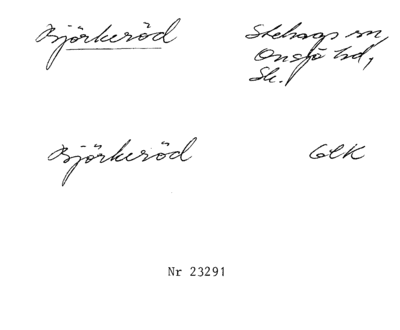 Björkeröd
Stehags sn,
Onsjö hd,
Sk.
Björkeröd
GEK
Nr 23291